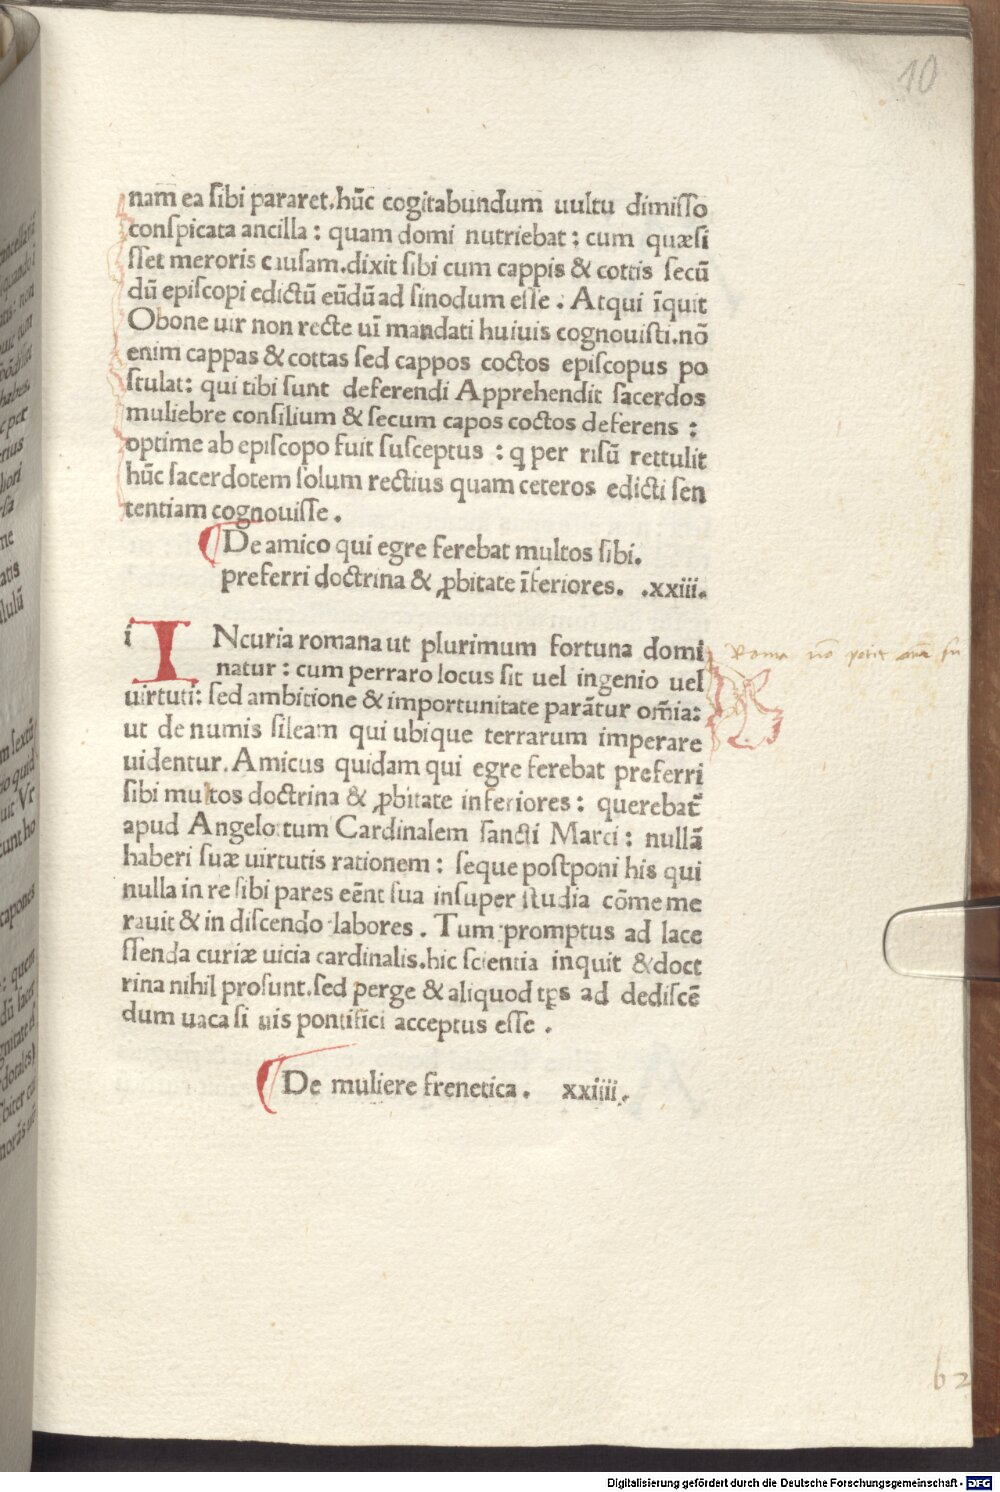 10
nam ea sibi pararet.hūc cogitabundum uultu dimisso
conspicata ancilla: quam domi nutriebat: cum quæsi
sset meroris causam.dixit sibi cum cappis & cottis secū
dū episcopi edictū eūdū ad sinodum esse. Atqui īquit
Obone uir non recte uī mandati huiuis cognouisti.nō
enim cappas & cottas sed cappos coctos episcopus po
stulat: qui tibi sunt deferendi Apprehendit sacerdos
muliebre consilium & secum capos coctos deferens:
optime ab episcopo fuit susceptus: ꝗ per risū rettulit
hūc sacerdotem solum rectius quam ceteros edicti sen
tentiam cognouisse.
De amico qui egre ferebat multos sibi.
preferri doctrina & ꝓbitate īferiores. .xxiii.
i
INcuria romana ut plurimum fortuna domi
natur: cum perraro locus sit uel ingenio uel
uirtuti: sed ambitione & importunitate parātur om̄ia:
ut de numis sileam qui ubique terrarum imperare
uidentur. Amicus quidam qui egre ferebat preferri
sibi multos doctrina & ꝓbitate inferiores: querebat᷑
apud Angelottum Cardinalem sancti Marci: nullā
haberi suæ uirtutis rationem: seque postponi his qui
nulla in re sibi pares eēnt sua insuper studia cōmeme
rauit & in discendo labores. Tum promptus ad lace
ssenda curiæ uicia cardinalis.hic scientia inquit & doct
rina nihil prosunt.sed perge & aliquod tp̄s ad dediscē
dum uaca si uis pontifici acceptus esse.
De muliere frenetica. xxiiii.
Roma
b 2
Digitalisierung gefördert durch die Deutsche Forschungsgemeinschaft - DFG